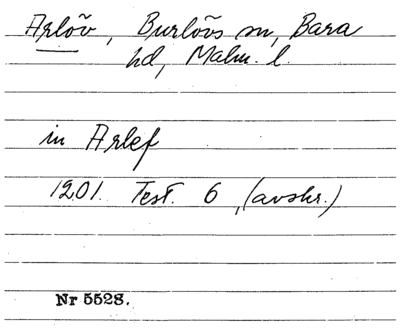 Arlöv, Burlövs sn, Bara
hd, Malm. l.
in Arlef
1201. Test. 6, (avskr.)
Nr 5528.